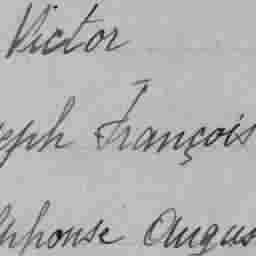 Victor
eph François
lphonse Augus